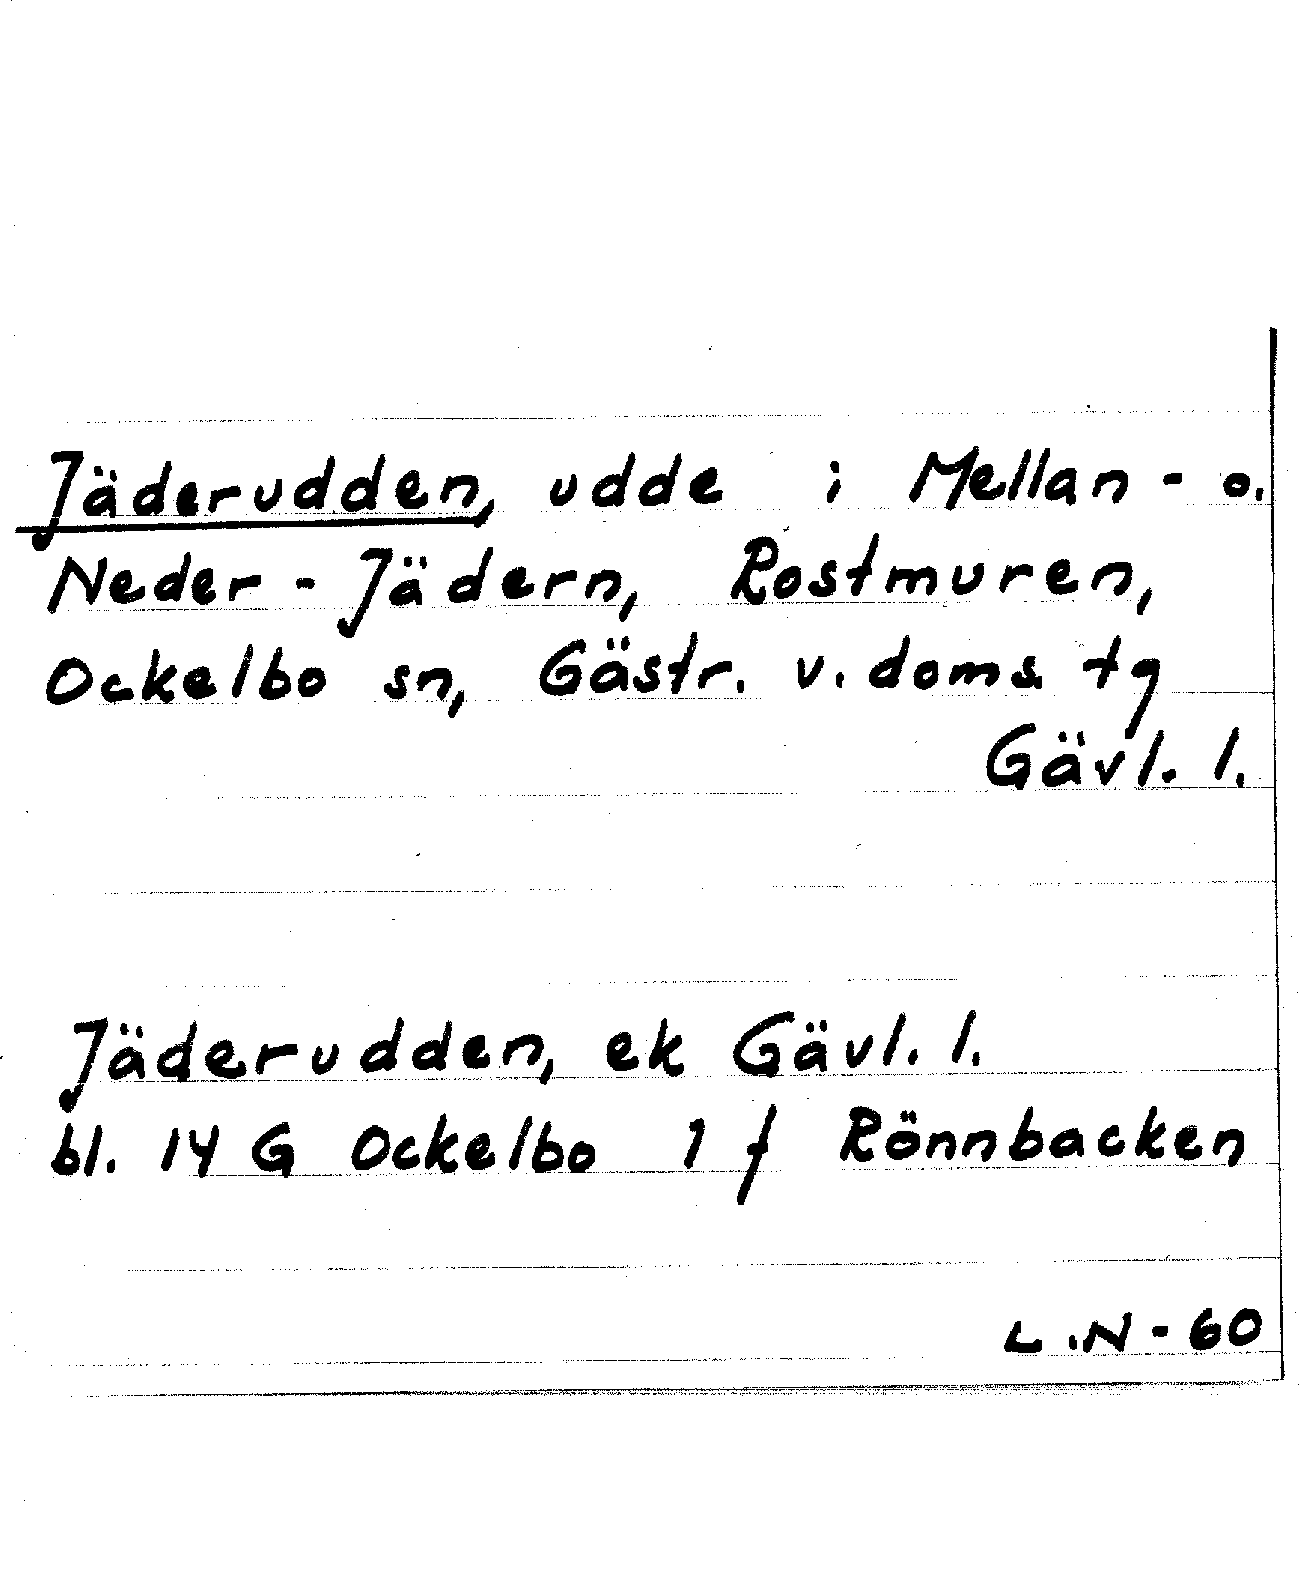 Jäderudden, udde i Mellan- o.
Neder-Jädern, Rostmuren,
Ockelbo sn, Gästr. v. doms. tg
Gävl. l.
Jäderudden, ek Gävl. l.
bl. 14 G Ockelbo 1 f Rönnbacken
L.N-60